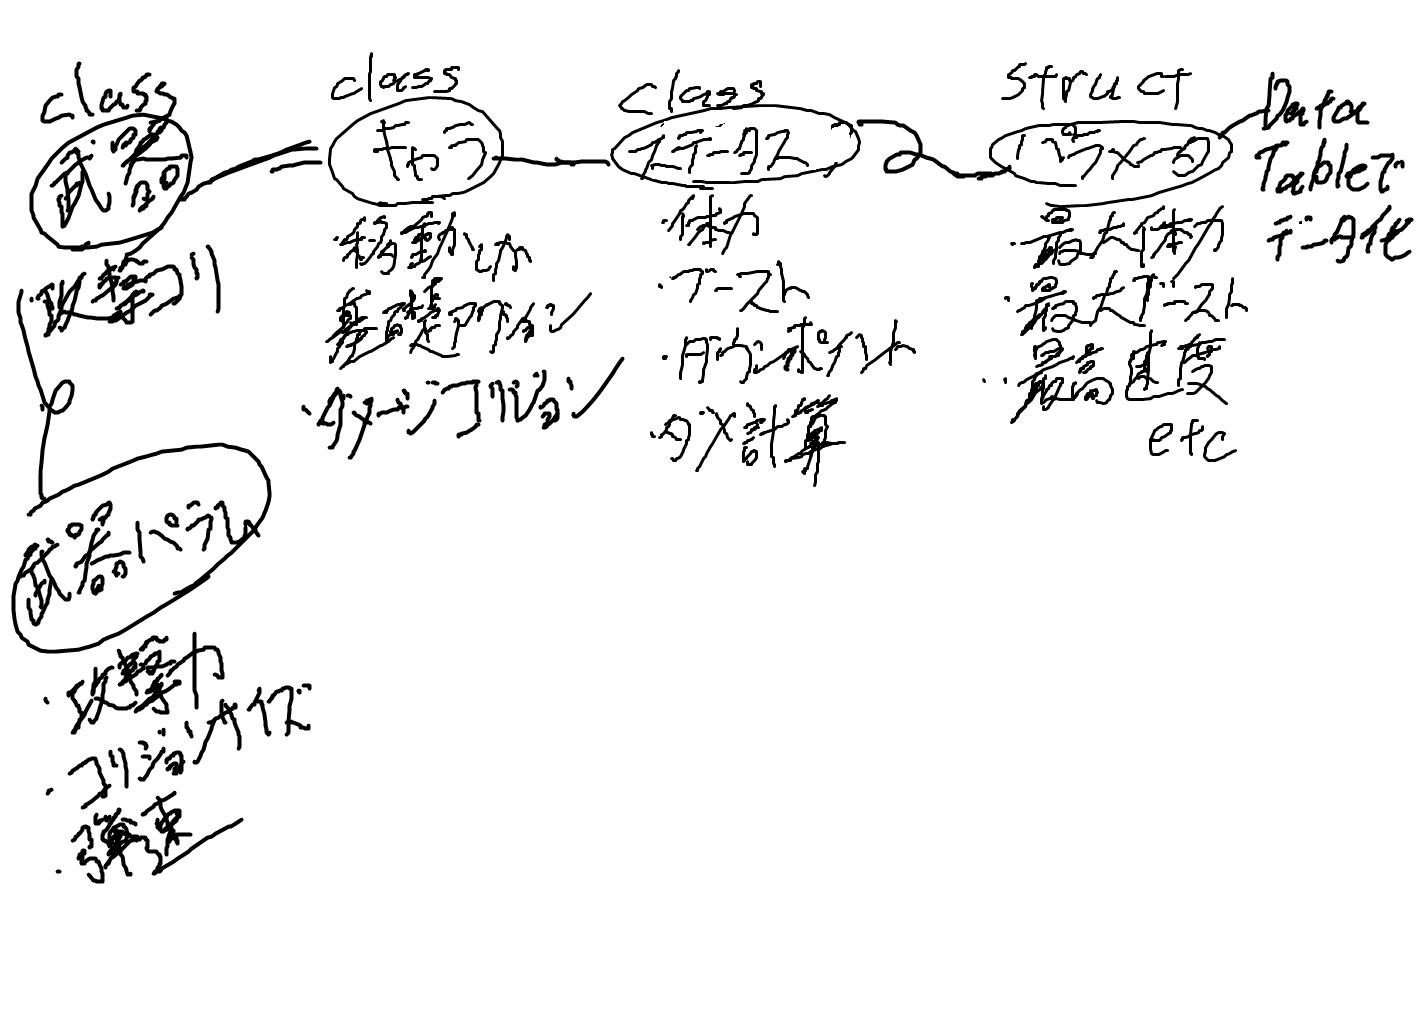 class
武器
攻撃コリ
武器パラム
・攻撃力
・コリジョンサイズ
・弾速
class
キャラ
・移動しか
基礎アクション
・ダメージコリジョン
class
ステータス
・体力
・ブースト
・ダウンポイント
・ダメ計算
struct
パラメータ
・最大体力
・最大ブースト
・最高速度
etc
Data
Tableで
データ化